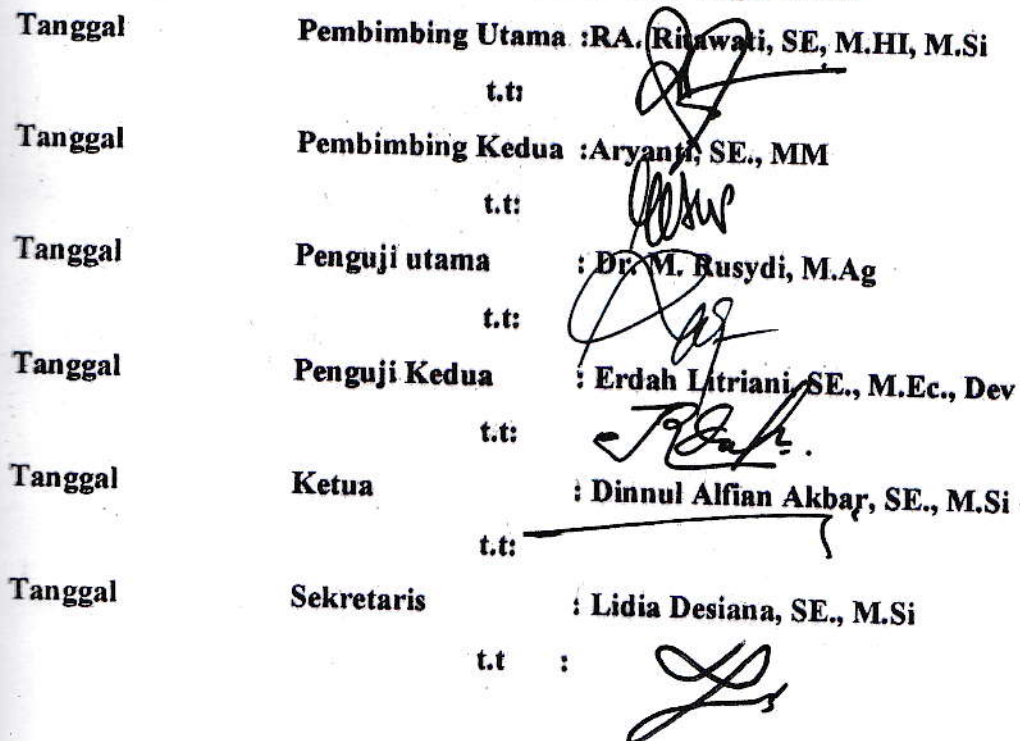 Tanggal Pembimbing Utama :RA. Ritawati, SE, M.HI, M.Si
t.t:
Tanggal Pembimbing Kedua :Aryanti, SE., MM
t.t:
Tanggal Penguji utama : Dr. M. Rusydi, M.Ag
t.t:
Tanggal Penguji Kedua : Erdah Litriani, SE., M.Ec., Dev
t.t:
Tanggal Ketua : Dinnul Alfian Akbar, SE., M.Si
t.t:
Tanggal Sekretaris : Lidia Desiana, SE., M.Si
t.t :